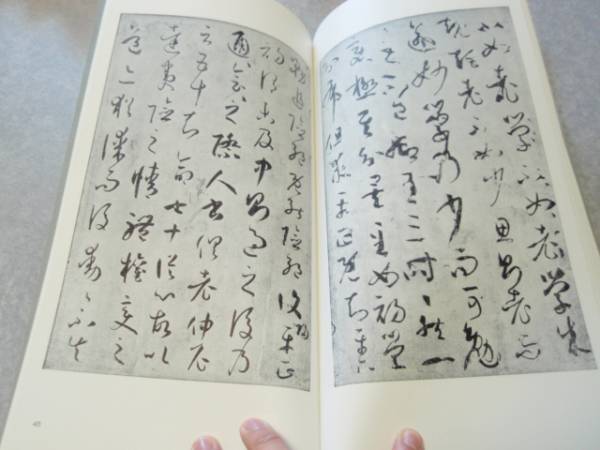 不如老學不如老學成
規矩老不如少思則老而
逾妙學乃少而可勉
之不已抑有三時〻然一
變極其分矣至如初學
分布但求平正既知平正
務追險絕既能險絕復歸平正
初謂未及中則過之後乃
通會之際人書俱老仲尼
云五十知命七十從心故以
達夷險之情體權變之
道亦猶謀而後動〻不失